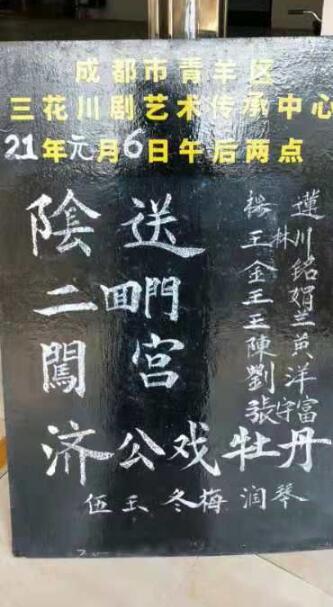 成都市青羊区
三花川剧艺术传承中心
21年元月6日午后两点
陰送
二回門
闖宫
蓮
王林川
金銘
王娟
王兰
陳黄
劉洋
張守富
济公戏牡丹
伍玉 冬梅 润琴